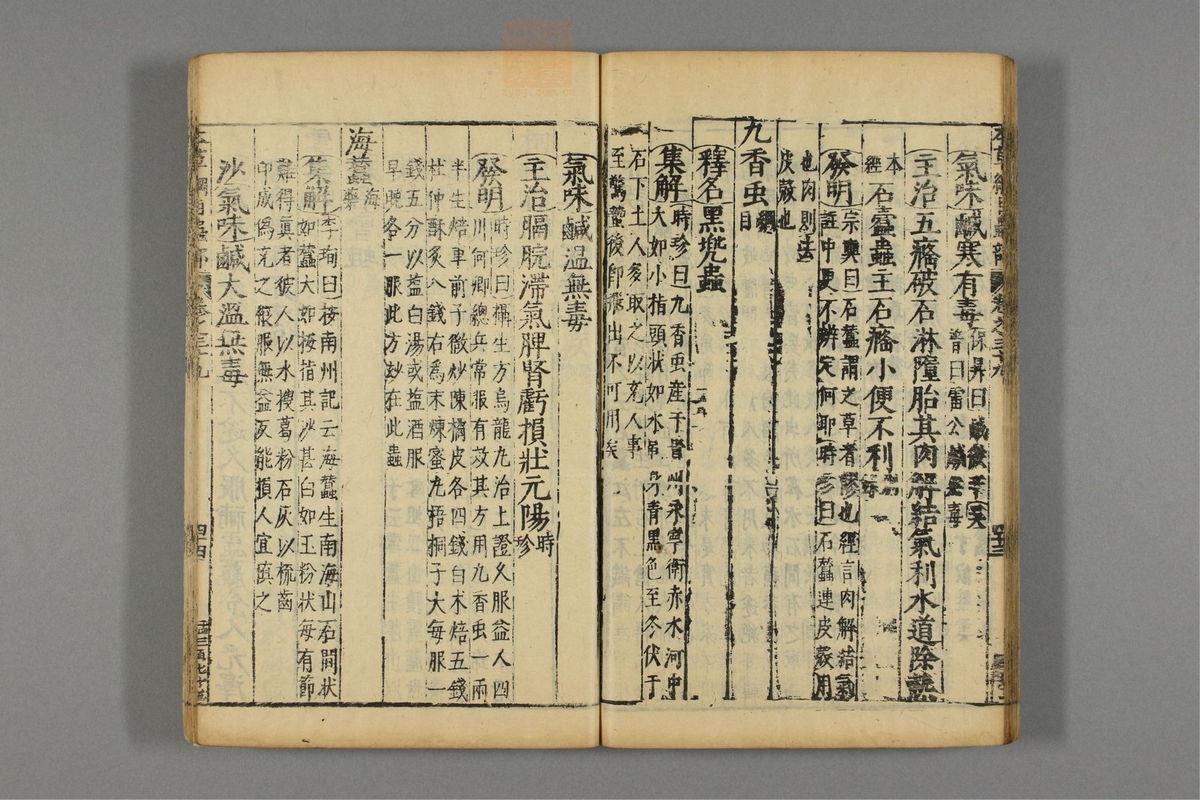 氣味鹹寒有毒保昇曰鹹微辛
普曰雷公鹹無毒
主治五癃破石淋墮胎其肉解結氣利水道除熱
本經
石蠶蟲主石癃小便不利
發明宗奭曰石蠶謂之草者謬也經言肉解結氣
註中更不辨定何耶時珍曰石蠶連皮蔌用
也肉則去
皮蔌也
九香虫綱目
釋名黑兜蟲
集解時珍曰九香虫産于貴州永寧衛赤水河中
大如小指頭狀如水黽身青黑色至冬伏于
石下土人多取之以充人事
至驚蟄後即飛出不可用矣
氣味鹹温無毒
主治膈脘滯氣脾腎虧損壯元陽時珍
發明時珍曰攝生方烏龍丸治上證久服益人四
川何卿總兵常服有效其方用九香虫一兩
半生焙車前子微炒陳橘皮各四錢白朮焙五錢
杜仲酥炙八錢右爲末煉蜜丸梧桐子大每服一
錢五分以盐白湯或盐酒服
早晚各一服此方玅在此蟲
海蠶海藥
集解李珣曰按南州記云海蠶生南海山石間狀
如蠶大如拇指其沙甚白如玉粉狀每有節
難得真者彼人以水搜葛粉石灰以梳齒
印成爲充之縱服無益反能損人宜慎之
沙氣味鹹大温無毒